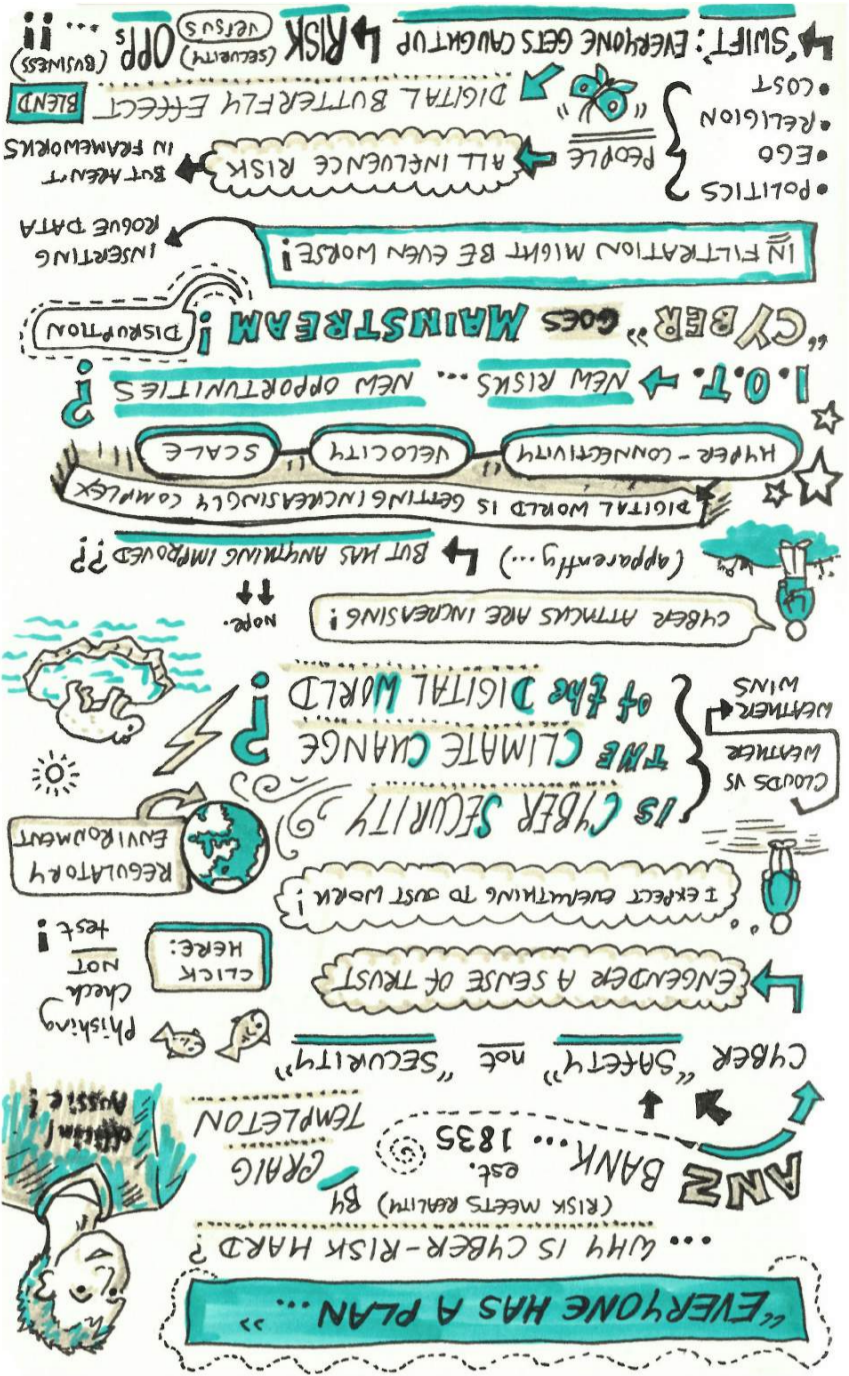 "EVERYONE HAS A PLAN ..."
... WHY IS CYBER-RISK HARD?
(RISK MEETS REALITY) BY
CRAIG
TEMPLETON
ANZ BANK ... est. 1835
official
Aussie!
CYBER "SAFETY" not "SECURITY"
ENGENDER A SENSE OF TRUST
Phishing
check
NOT
test!
CLICK
HERE:
I EXPECT EVERYTHING TO JUST WORK!
REGULATORY
ENVIRONMENT
CLOUDS VS
WEATHER
WEATHER
WINS
IS CYBER SECURITY
THE CLIMATE CHANGE
of the DIGITAL WORLD?
CYBER ATTACKS ARE INCREASING!
NOPE.
(apparently...) BUT HAS ANYTHING IMPROVED??
DIGITAL WORLD IS GETTING INCREASINGLY COMPLEX
HYPER-CONNECTIVITY VELOCITY SCALE
I.O.T. NEW RISKS ... NEW OPPORTUNITIES?
"CYBER" GOES MAINSTREAM!
DISRUPTION
INFILTRATION MIGHT BE EVEN WORSE!
INSERTING
ROGUE DATA
• POLITICS
• EGO
• RELIGION
• COST
PEOPLE
ALL INFLUENCE RISK
BUT AREN'T
IN FRAMEWORKS
DIGITAL BUTTERFLY EFFECT
BLEND
"SWIFT": EVERYONE GETS CAUGHT UP
RISK (SECURITY) VERSUS OPPs (BUSINESS) ...!!